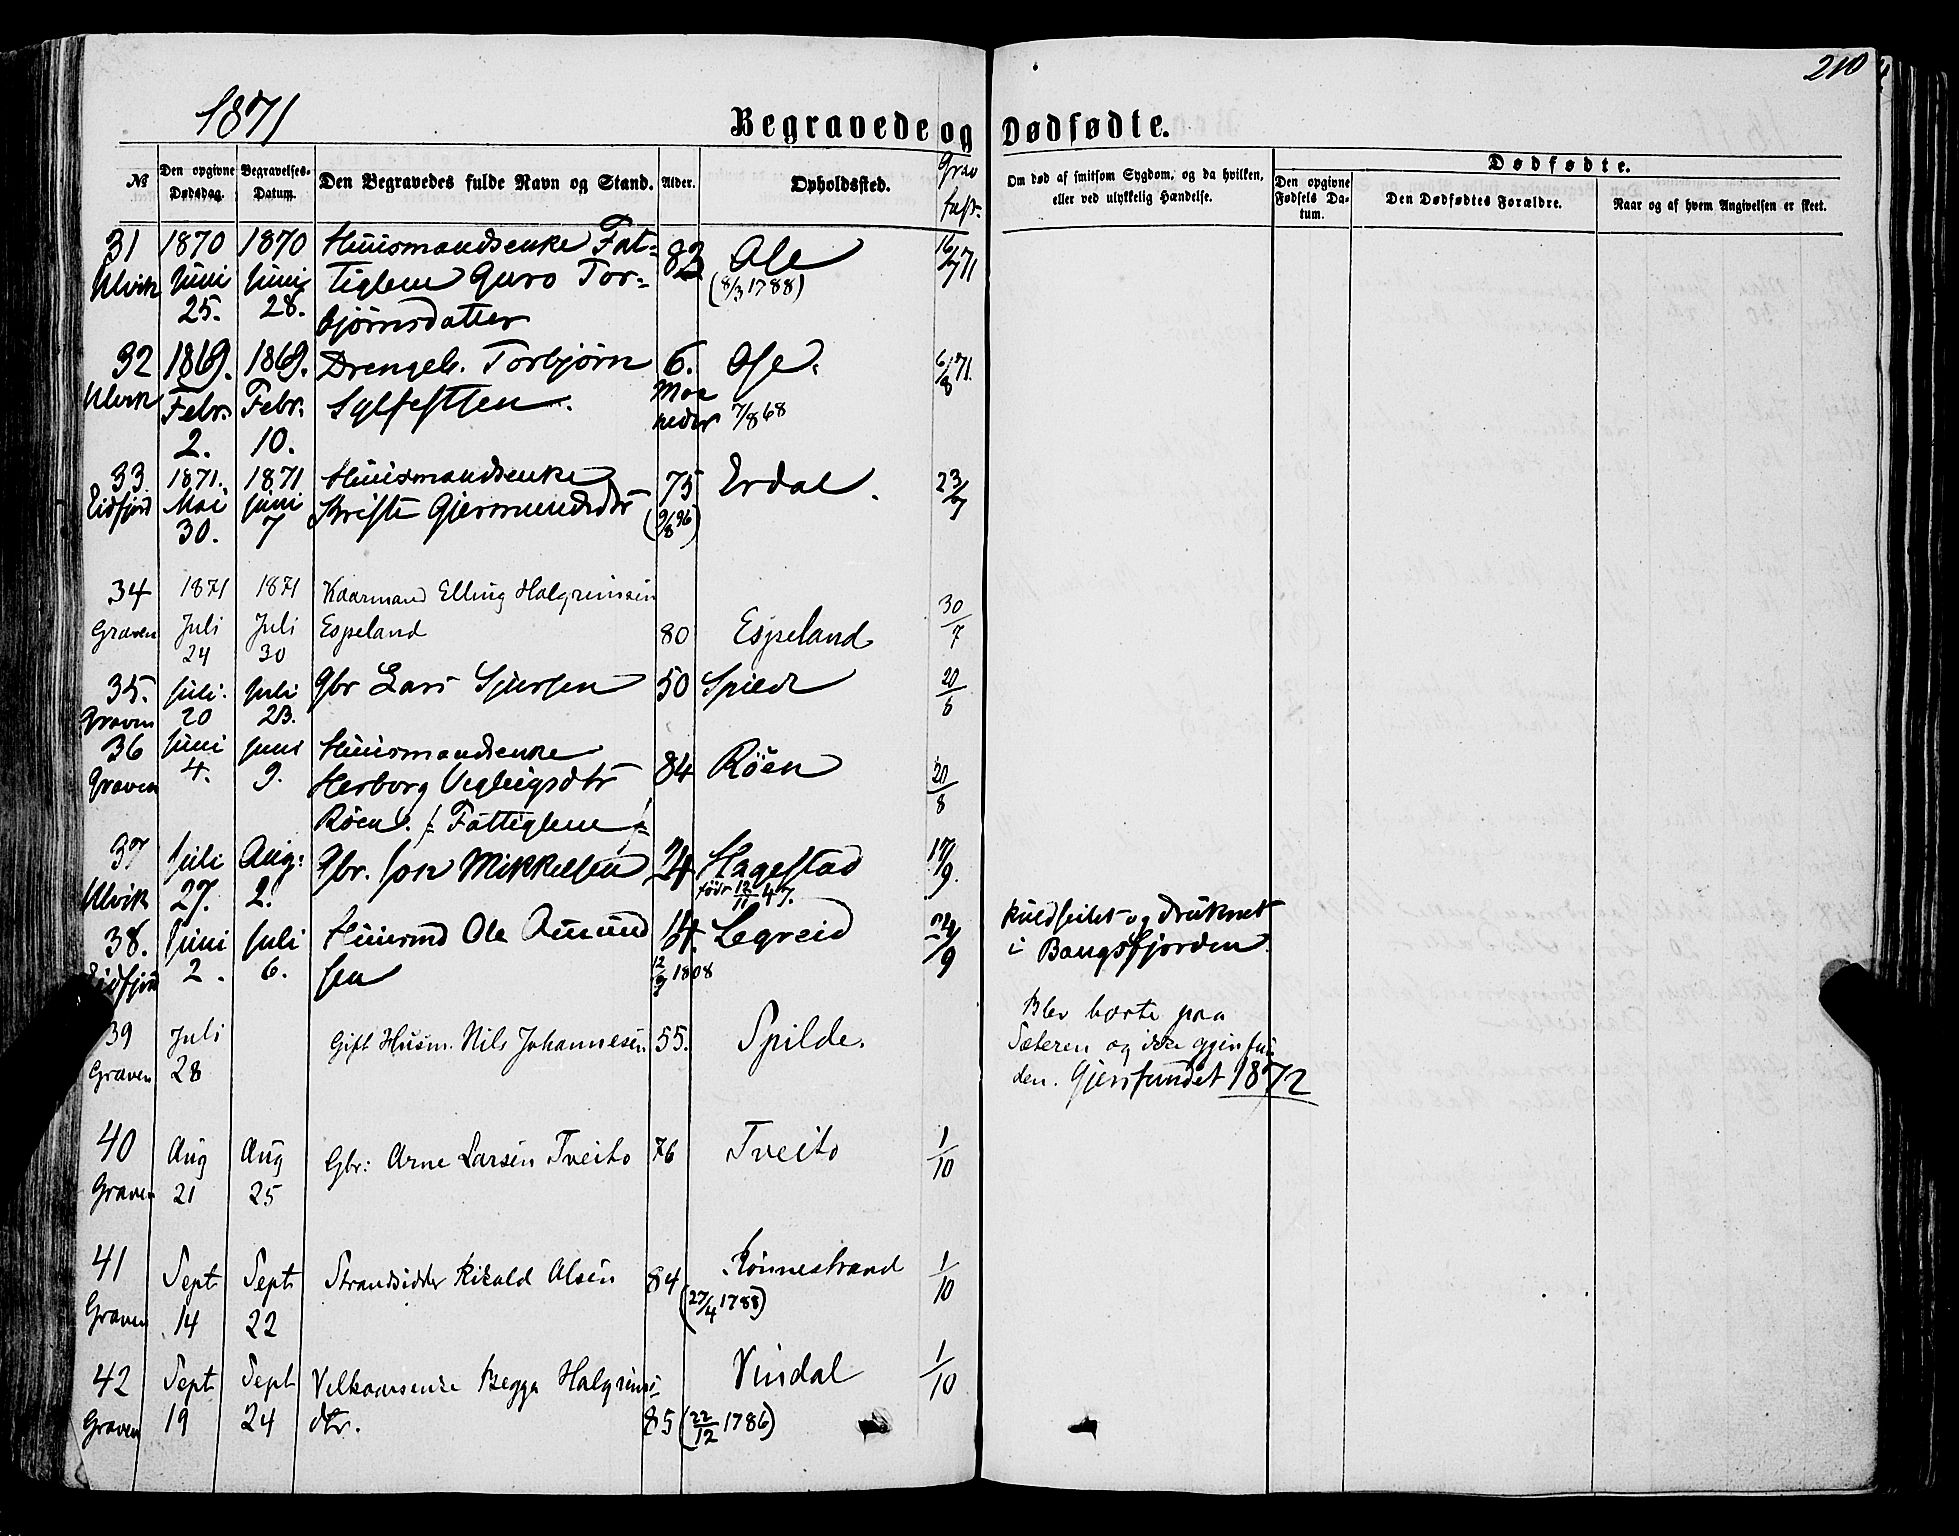 210
1871
Begravede og Dødfødte.
№
Den opgivne Dødsdag.
Begravelses-Datum.
Den Begravedes fulde Navn og Stand.
Alder.
Opholdssted.
Grav fæst.
Om død af smitsom Sygdom, og da hvilken, eller ved ulykkelig Hændelse.
Dødfødte.
Den opgivne Fødsels Da-tum.
Den Dødfødtes Forældre.
Naar og af hvem Angivelsen er skeet.
31 1870 1870 Huusmandsenke Fat- 83 Ose 16/7 71
Ulvik Juni Juni tiglem Guro Tor- (8/3 1788)
25. 28. bjørnsdatter
32 1869. 1869. Drengeb. Torbjørn 6. Ose. 6/8 71.
Ulvik Febr. Febr. Sylfestsen. Maa
2. 10. neder 7/8 68
33 1871. 1871 Huusmandsenke 75 Erdal. 23/7
Eidfjord Mai Juni Kristi Gjermundsdtr (9/8 96)
30. 7
34 1871 1871 Kaarmand Elling Halgrimsen 30/7
Graven Juli Juli Espeland 80 Espeland
24 30
35. Juli. Juli Gbr Lars Sjursen 50 Spilde 20/8
Graven 20 23.
36 Juni Juni Huusmandsenke
Graven 4. 9. Herborg Vegleigsdtr 84 Røen 20/8
Røen. /: Fattiglem :/
37 Juli Aug: Gbr. Jon Mikkelsen 24 Hagestad 17/9.
Ulvik 27. 2. født 12/11 47.
38. Juni Juli Huusmd Ole Amund Legreid 24/9 Kuldseilet og druknet
Eidfjord 2. 6. sen 12/9 1808 i Bangsfjorden.
39 Juli Gift Husm. Nils Johannesen 55. Spilde. Blev borte paa
Graven 28 Sæteren og ikke gjenfun
den. Gjenfundet 1872
40 Aug Aug Gbr: Arne Larsen Tveito 76 Tveito 1/10
Graven 21 25
41 Sept Sept Strandsidder Rikald Olsen 84 Rønnestrand 1/10
Graven 14 22 (27/4 1788)
42 Sept Sept Velkaarsenke Begga Halgrims- Vindal 1/10
Graven 19 24 dtr. 85 (22/12 1786)